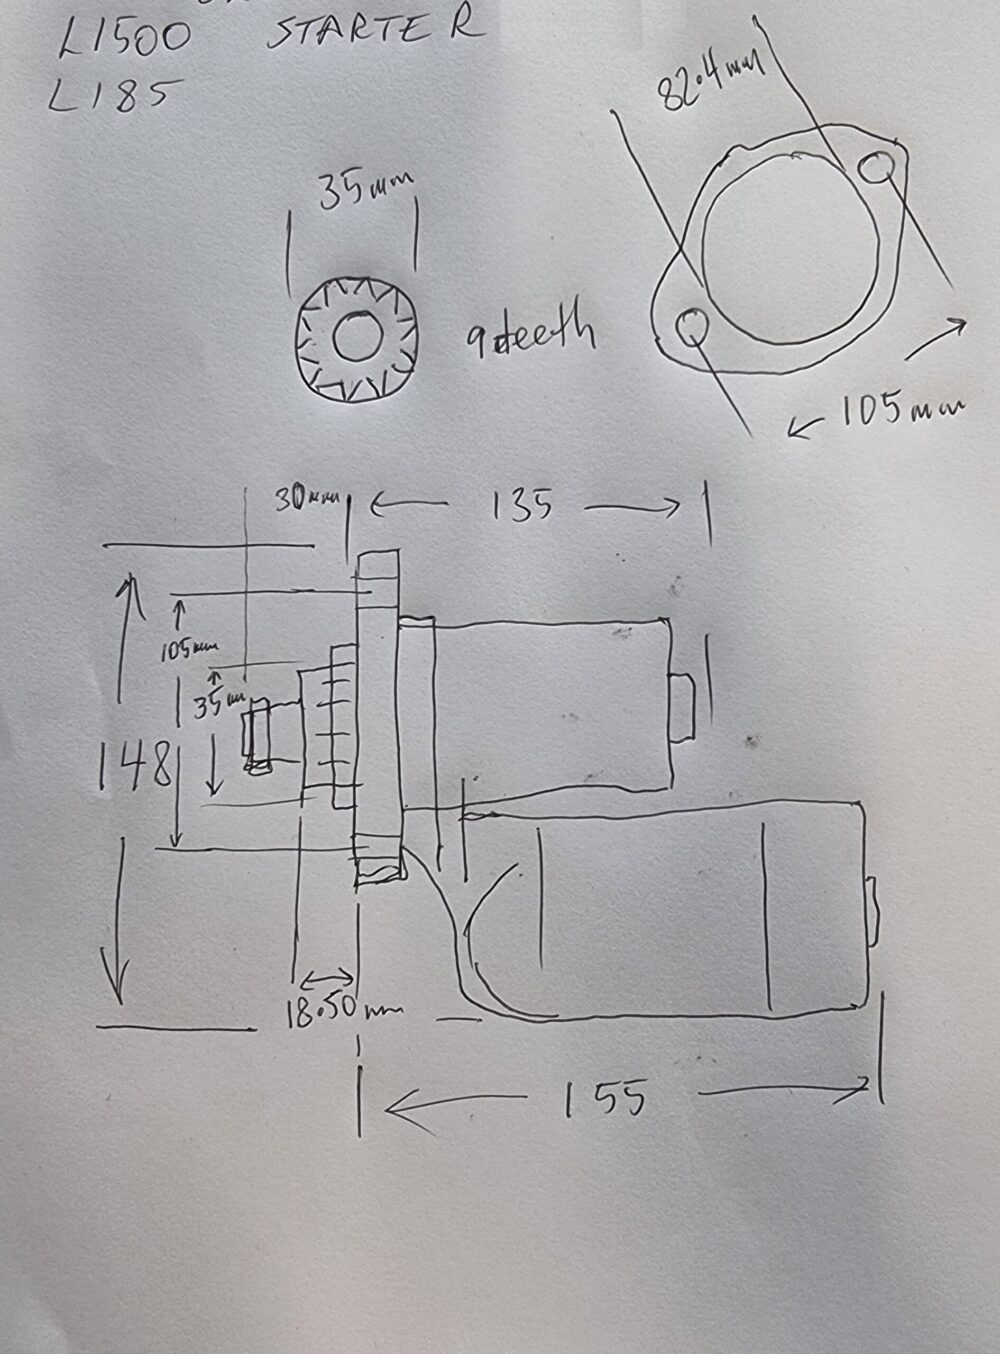 L1500 STARTER
L185
82.4mm
35mm
9 teeth
105mm
30mm
135
105mm
35mm
148
18.50mm
155